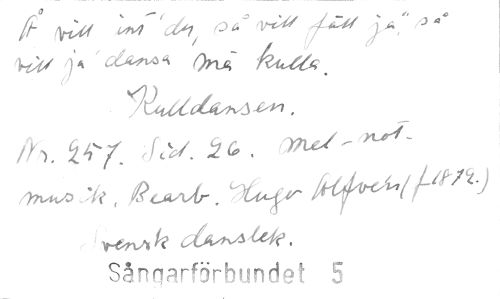 Å vill int' du, så vill fäll ja", så
vill ja' dansa mä kulla.
Kulldansen.
Nr. 257. Sid. 26. mel-not-
musik. Bearb. Hugo Alfvén (f 1872.)
Svensk danslek.
Sångarförbundet 5